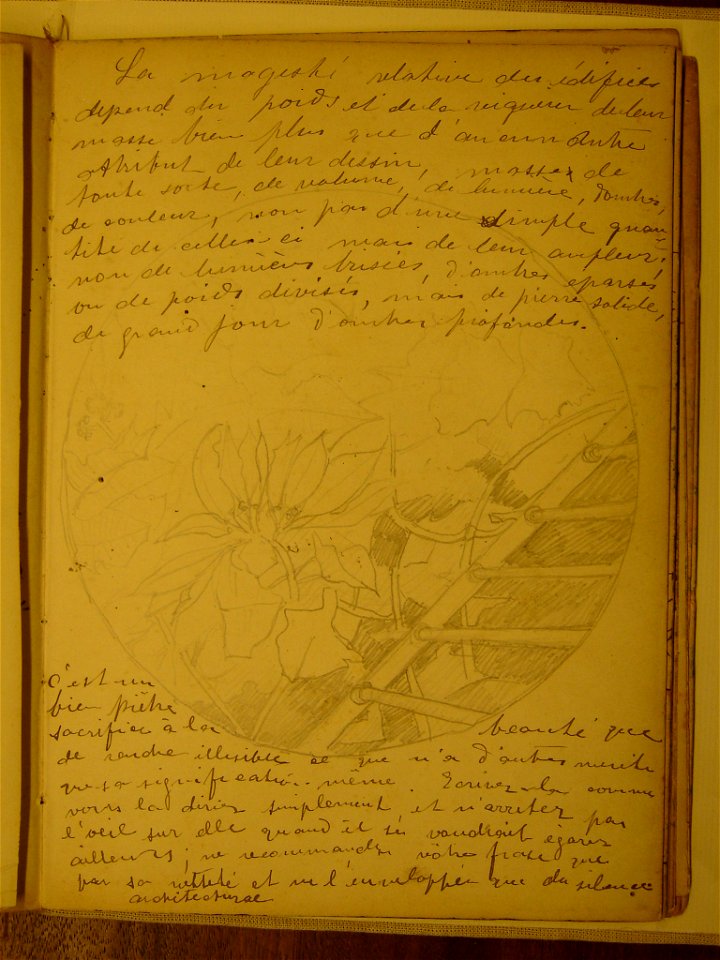 La magesté relative des édifices
dépend du poids et de la vigueur de leur
masse bien plus que d'aucun autre
attribut de leur dessin, masse de
toute sorte, de volume, de lumière, d'ombre,
de couleur, non pas d'une simple quan-
tité de celles ci mais de leur ampleur;
non de lumières brisées, d'ombres eparses
ou de poids divisés, mais de pierre solide,
de grand jour d'ombres profondes.
C'est un
bien piètre
sacrifice à la beauté que
de rendre illisible ce que n'a d'autre mérite
que sa signification même. Ecrivez-la comme
vous la diriez simplement, et n'arretez pas
l'œil sur elle quand il se voudrait égarer
ailleurs; ne recommandez vôtre frase que
par sa netteté et ne l'envelopper que du silence
architectural